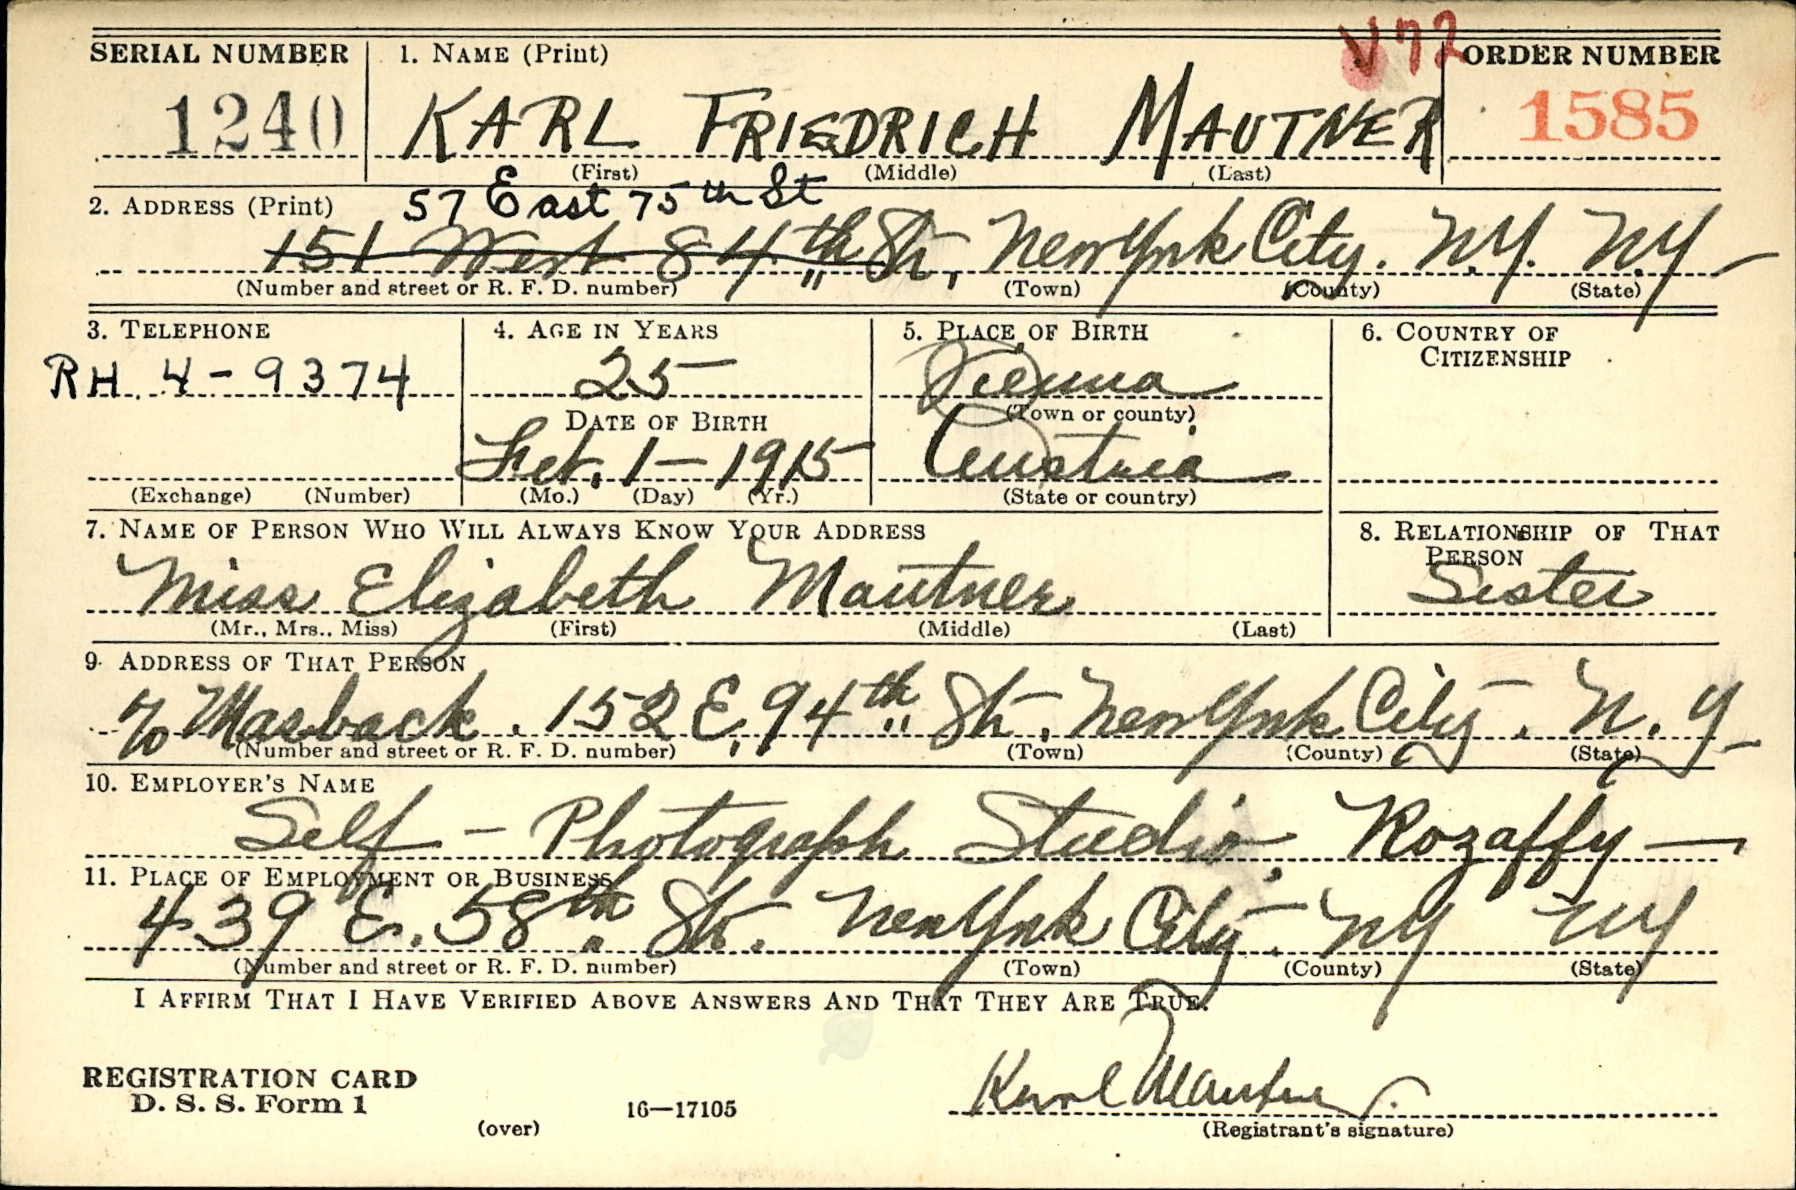 V72
SERIAL NUMBER 1. NAME (Print) ORDER NUMBER
1240 KARL FRIEDRICH MAUTNER 1585
(First) (Middle) (Last)
2. ADDRESS (Print) 57 East 75th St
151 West 84th St, New York City. N.Y. N.Y
(Number and street or R. F. D. number) (Town) (County) (State)
3. TELEPHONE 4. AGE IN YEARS 5. PLACE OF BIRTH 6. COUNTRY OF CITIZENSHIP
RH 4-9374 25 Vienna
DATE OF BIRTH (Town or county)
Feb. 1-1915 Austria
(Exchange) (Number) (Mo.) (Day) (Yr.) (State or country)
7. NAME OF PERSON WHO WILL ALWAYS KNOW YOUR ADDRESS 8. RELATIONSHIP OF THAT PERSON
Miss Elizabeth Mautner Sister
(Mr., Mrs., Miss) (First) (Middle) (Last)
9. ADDRESS OF THAT PERSON
% Masback. 152 E. 94th St. New York City. N.Y
(Number and street or R. F. D. number) (Town) (County) (State)
10. EMPLOYER'S NAME
Self - Photograph Studio, Rozaffy
11. PLACE OF EMPLOYMENT OR BUSINESS
439 E. 58th St. New York City. NY NY
(Number and street or R. F. D. number) (Town) (County) (State)
I AFFIRM THAT I HAVE VERIFIED ABOVE ANSWERS AND THAT THEY ARE TRUE.
REGISTRATION CARD Karl Mautner.
D. S. S. Form 1 16—17105
(over) (Registrant's signature)